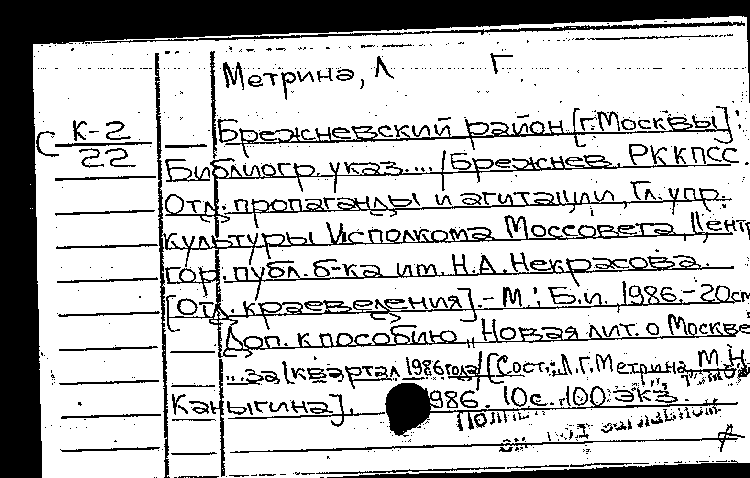 Метрина, Л Г
С К-2
22
Брежневский район [г.Москвы]:
Библиогр. указ... / Брежнев. РК КПСС.
Отд. пропаганды и агитации, Гл. упр.
культуры Исполкома Моссовета, Центр
гор. публ. б-ка им. Н.А. Некрасова.
[Отд. краеведения]. - М.: Б.и., 1986. - 20см
Доп. к пособию „Новая лит. о Москве
... за I квартал 1986 года / [Сост.: Л.Г. Метрина, М.Н.
Каныгина]. 1986. 10с. 100 экз.